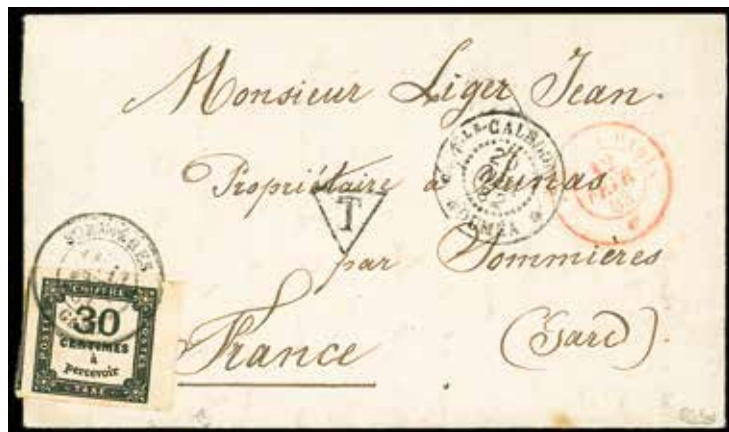 Monsieur Liger Jean.
Propriétaire à Junas
par Sommières
(Gard).
France
T
Nlle-CALEDONIE
NOUMEA
SOMMIERES
CHIFFRE
POSTE
POSTE
TAXE
30
CENTIMES
à
percevoir